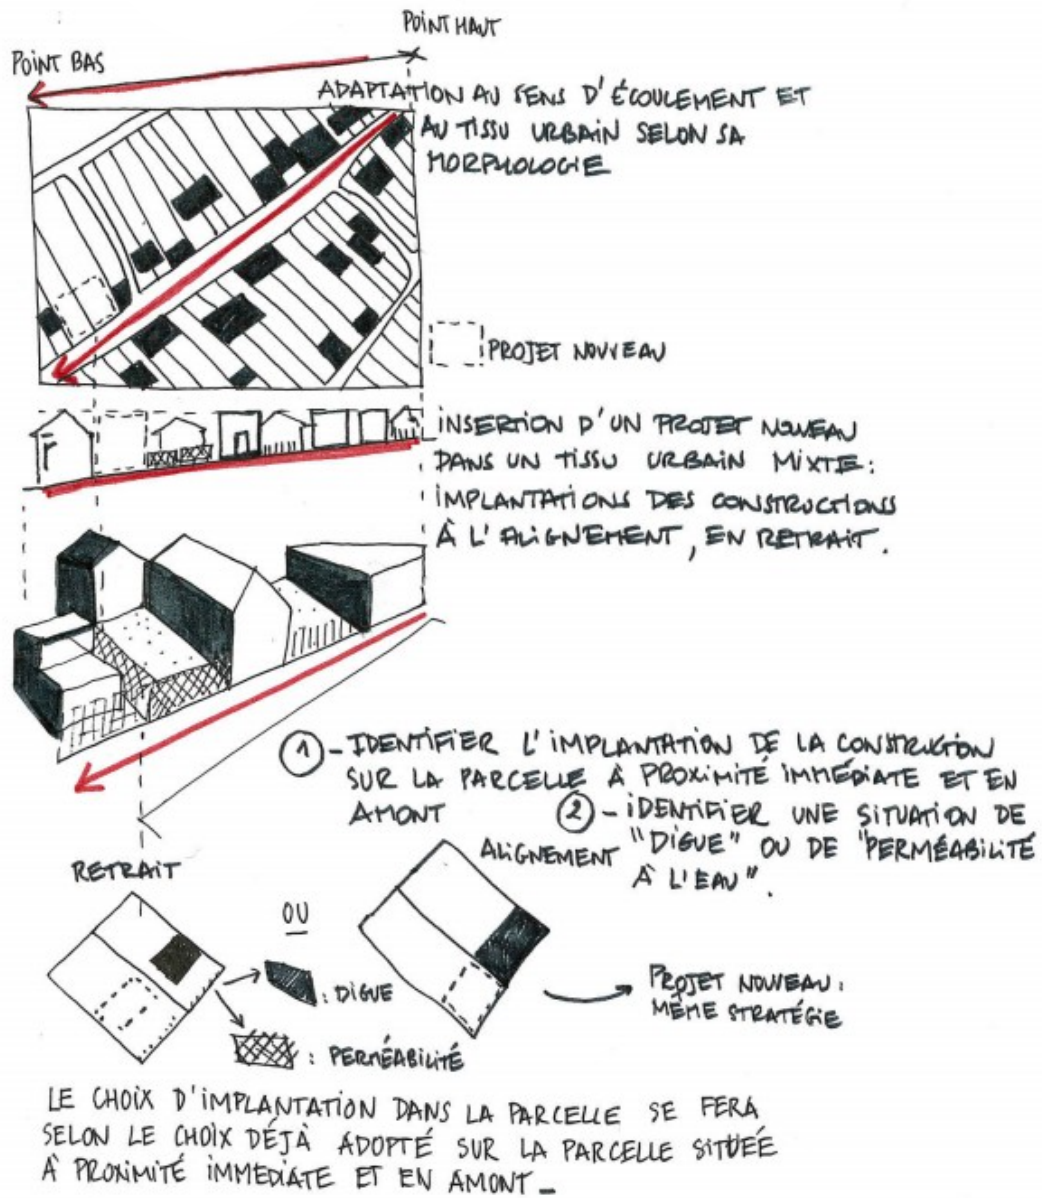 POINT HAUT
POINT BAS
ADAPTATION AU SENS D'ÉCOULEMENT ET
AU TISSU URBAIN SELON SA
MORPHOLOGIE
PROJET NOUVEAU
INSERTION D'UN PROJET NOUVEAU
DANS UN TISSU URBAIN MIXTE :
IMPLANTATIONS DES CONSTRUCTIONS
À L'ALIGNEMENT, EN RETRAIT.
1 - IDENTIFIER L'IMPLANTATION DE LA CONSTRUCTION
SUR LA PARCELLE À PROXIMITÉ IMMÉDIATE ET EN
AMONT
2 - IDENTIFIER UNE SITUATION DE
"DIGUE" OU DE "PERMÉABILITÉ
À L'EAU".
RETRAIT
OU
ALIGNEMENT
: DIGUE
: PERMÉABILITÉ
PROJET NOUVEAU :
MÊME STRATÉGIE
LE CHOIX D'IMPLANTATION DANS LA PARCELLE SE FERA
SELON LE CHOIX DÉJÀ ADOPTÉ SUR LA PARCELLE SITUÉE
À PROXIMITÉ IMMEDIATE ET EN AMONT -